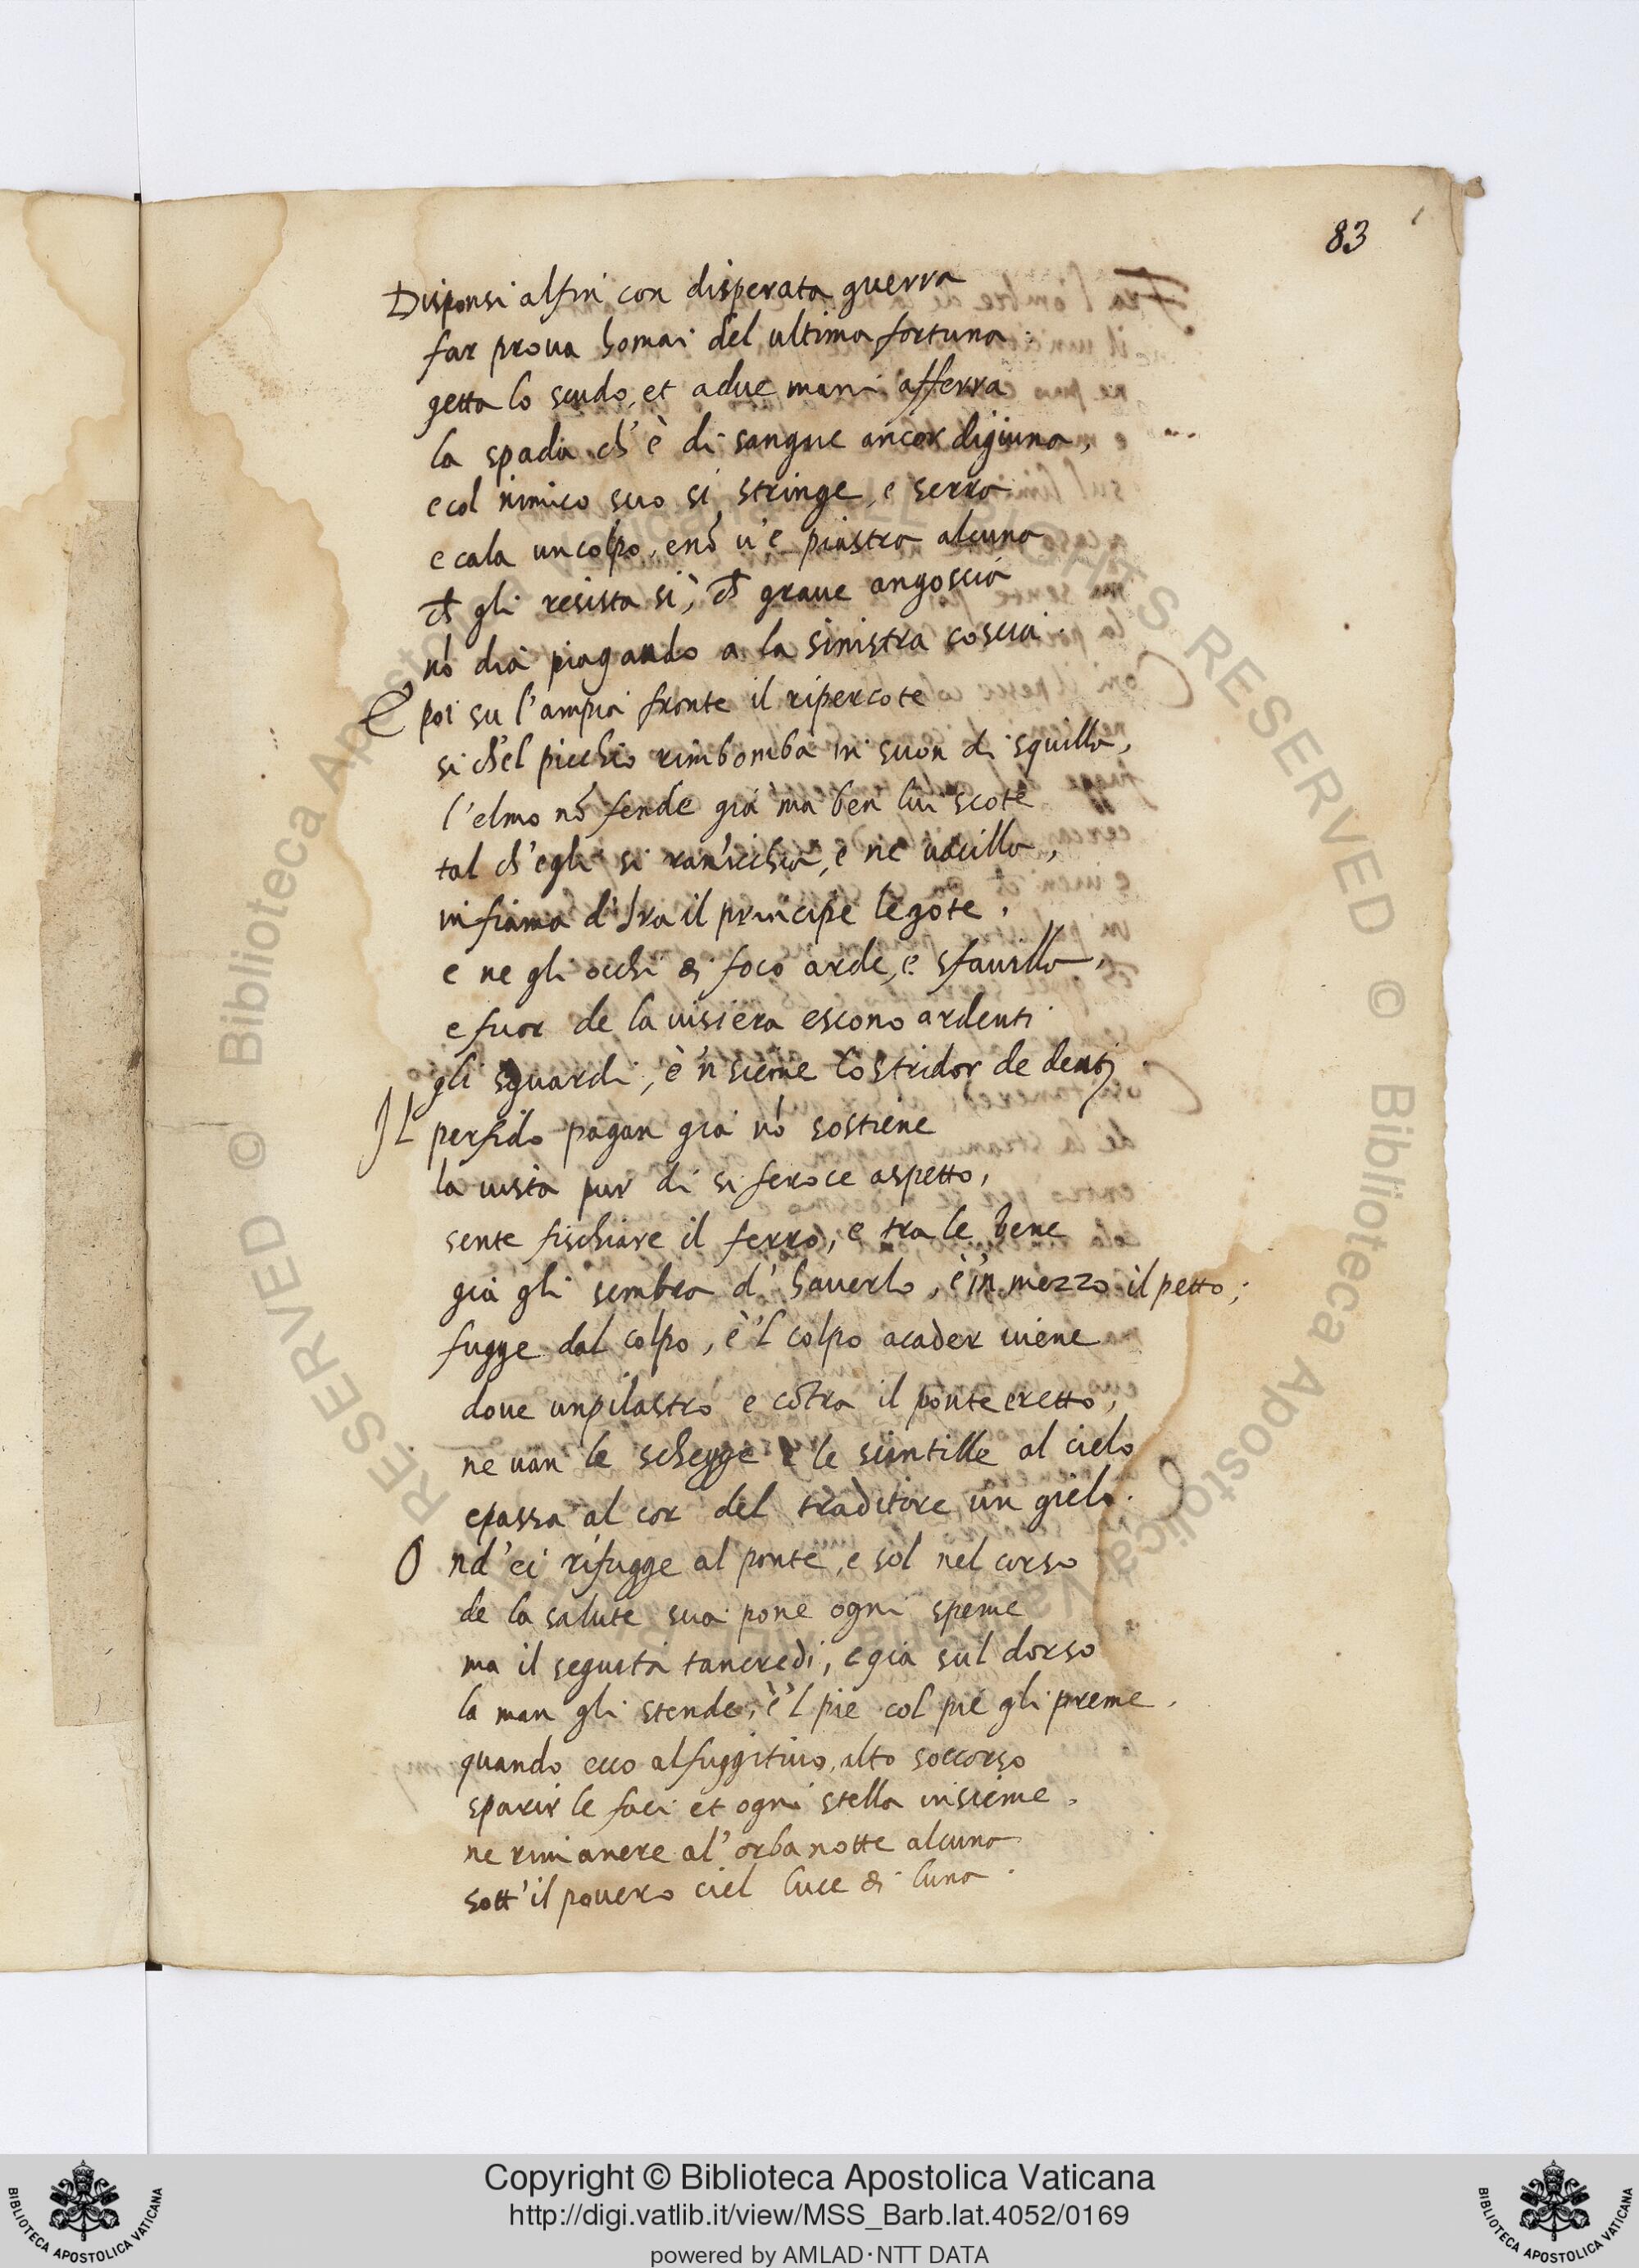 83
Disponsi alfin con disperata guerra
far prova homai del ultima fortuna.
getta lo scudo, et adue mani afferra
la spada ch'è di sangue ancor digiuna,
ecol nimico suo si stringe, e serra
e cala un colpo, enō u'è piastra alcuna
ch gli resista sì, ch grave angoscia
nō dia piagando a la sinistra coscia.
E poi su l'ampia fronte il ripercote
si ch'el picchio rimbomba in suon di squilla,
l'elmo nō fende già ma ben lui scote
tal ch'egli si rannicchia, e ne vacilla,
infiāma d'Ira il principe le gote,
e ne gli occhi di foco arde, e sfavilla,
e fuor de la visiera escono ardenti
gli sguardi, è'nsieme lo stridor de denti
Il perfido pagan già nō sostiene
la vista pur di si feroce aspetto,
sente fischiare il ferro, e tra le vene
già gli sembra d'haverlo, è'in mezzo il petto;
fugge dal colpo, è'l colpo acader viene
dove un pilastro e cōtra il ponte eretto,
ne van le schegge e le scintille al cielo
epassa al cor del traditore un gielo.
Ond'ei rifugge al ponte, e sol nel corso
de la salute sua pone ogni speme
ma il seguita tancredi, e già sul dorso
la man gli stende, è'l pie col pie gli preme.
quando ecco al fuggitivo, alto soccorso
sparir le faci et ogni stella insieme,
ne rimanere al'orba notte alcuna
sott'il povero ciel luce di luna.
© Biblioteca Apostolica Vaticana ALL RIGHTS RESERVED
© Biblioteca Apostolica Vaticana ALL RIGHTS RESERVED
BIBLIOTECA APOSTOLICA VATICANA
Copyright © Biblioteca Apostolica Vaticana
http://digi.vatlib.it/view/MSS_Barb.lat.4052/0169
powered by AMLAD·NTT DATA
BIBLIOTECA APOSTOLICA VATICANA